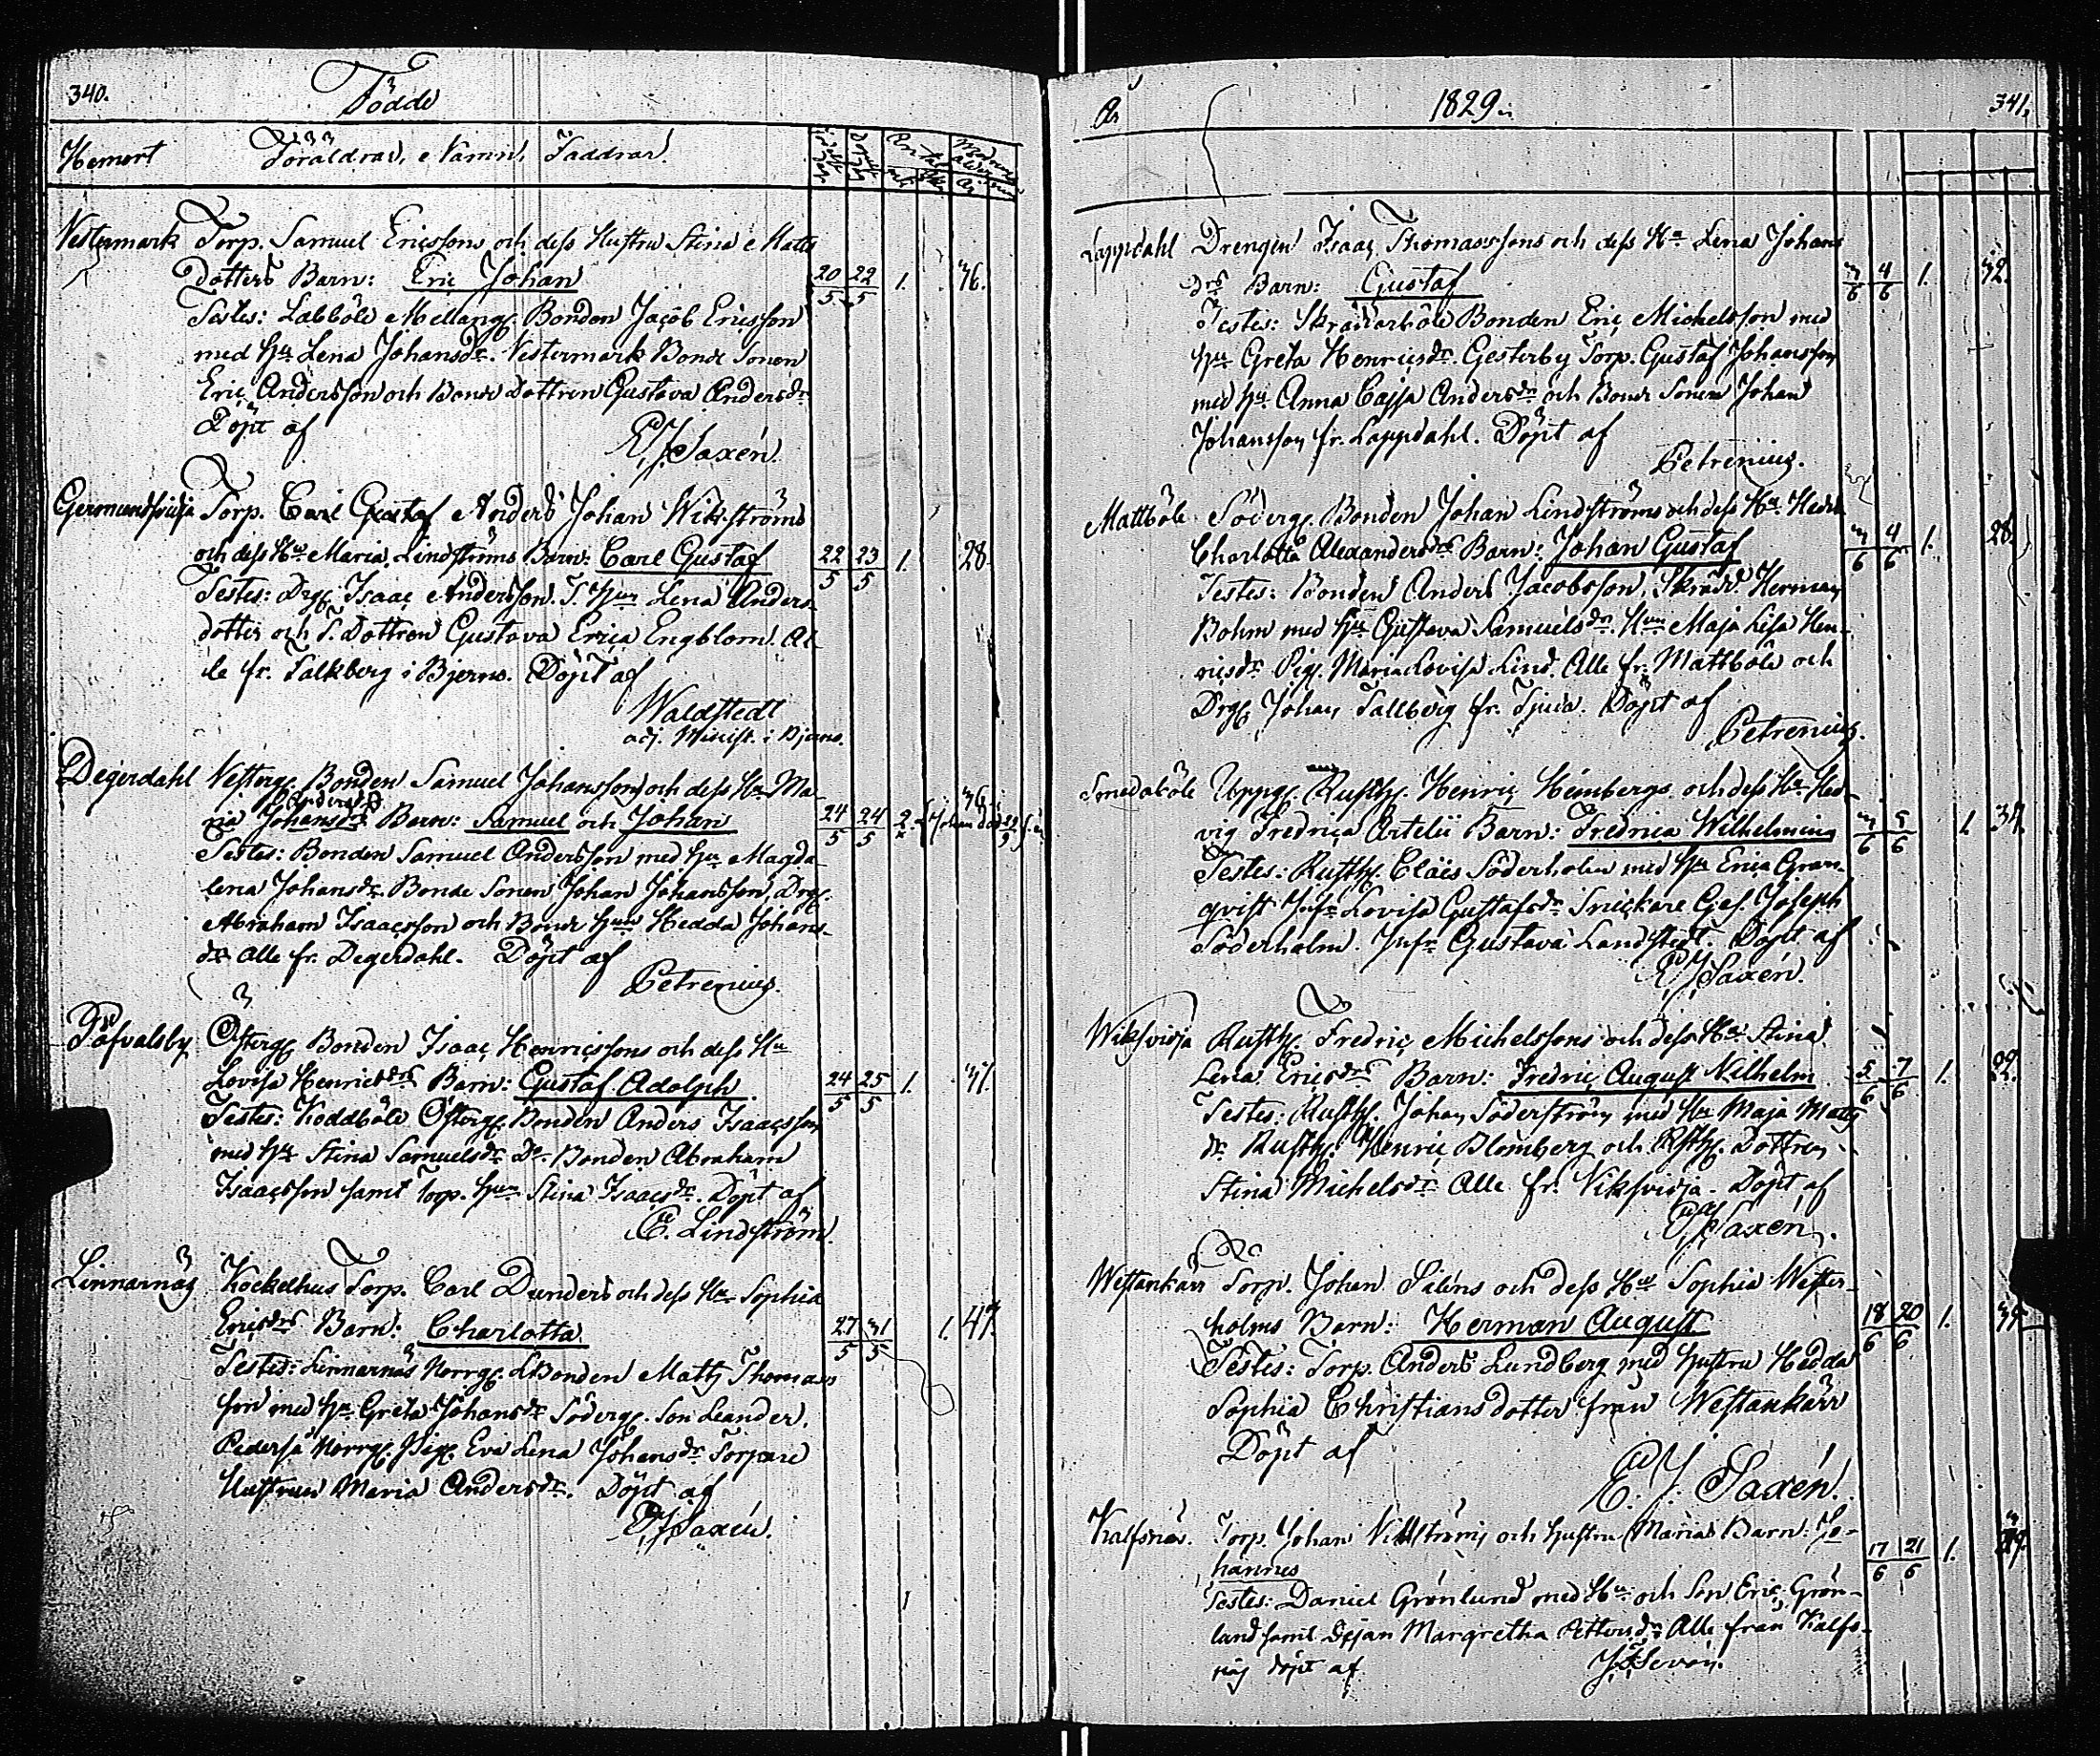 340.
Födde
Hemort Föräldrar, Namn, Faddrar.
Vestermark Torp. Samuel Ericssons och dess Hustru Stina Matts
Dotters Barn: Eric Johan 20/5 22/5 1. 36.
Testes: Labböle Mellang. Bonden Jacob Ericsson
med Hu Lena Johansdr. Vestermark Bonde Sonen
Eric Andersson och Bonde Dottren Gustava Andersdr
Döpt af
E J Saxén.
Germundsvidja Torp. Carl Gustaf Anders Johan Wikströms
och dess Hu Maria Lindströms Barn: Carl Gustaf 22/5 23/5 1. 28.
Testes: Drg. Isaac Andersson. T. Hun Lena Anders
dotter och T. Dottren Gustava Erica Engblom. Al
le fr. Falkberg i Bjerno. Döpt af
Waldstedt
adj. Minist. i Bjerno.
Degerdahl Vesterg. Bonden Samuel Johanssons och dess Hu Ma
Andersdrs
ria Johansdrs Barn: Samuel och Johan 24/5 24/5 2. 36.
Testes: Bonden Samuel Andersson med Hu Magda
lena Johansdr. Bonde Sonen Johan Johansson, Drg.
Abraham Isaacsson och Bonde Hun Hedda Johans
dr Alle fr. Degerdahl. Döpt af
Petrenius.
Påfvalsby Österg. Bonden Isaac Henricssons och dess Hu
Lovisa Henricsdrs Barn: Gustaf Adolph. 24/5 25/5 1. 37.
Testes: Koddböle Österg. Bonden Anders Isaacsson
med Hu Stina Samuelsdr. Do. Bonden Abraham
Isaacsson samt Torp. Hun Stina Isaacsdr. Döpt af
C. Lindström.
Linnarnäs Kockelhus Torp. Carl Dunders och dess Hu Sophia
Ericsdrs Barn: Charlotta 27/5 31/5 1. 43.
Testes: Linnarnäs Norrg. LBonden Matts Thomas
son med Hu Greta Johansdr Söderg. Son Leander.
Pederså Norrg. Pig. Eva Lena Johansdr Torpare
Hustrun Maria Andersdr. Döpt af
E J Saxén.
År 1829. 341.
Lappdahl Drengen Isaac Thomassons och dess Hu Lena Johans
drs Barn: Gustaf 3/6 4/6 1. 32.
Testes: Skräddarböle Bonden Eric Michelsson med
Hu Greta Henricsdr. Gesterby Torp. Gustaf Johansson
med Hu Anna Cajsa Andersdr och Bonde Sonen Johan
Johansson fr. Lappdahl. Döpt af
Petrenius.
Mattböle Söderg. Bonden Johan Lindströms och dess Hu Hedda
Charlotta Alexandersdrs Barn: Johan Gustaf 3/6 4/6 1. 28.
Testes: Bonden Anders Jacobsson, Skrädd. Herman
Bohm med Hu Gustava Samuelsdr. Hun Maja Lisa Hen
ricsdr Pig. Maria Lovisa Lind. Alle fr. Mattböle och
Drg. Johan Tallberg fr. Tjuda. Döpt af
Petrenius.
Smedaböle Uppg. Rusth. Henric Heimbergs och dess Hu Hed
vig Fredrica Artelii Barn: Fredrica Wilhelmina 3/6 5/6 1. 34.
Testes: Rusth. Claës Söderholm med Hu Erica Gran
qvist Lovisa Gustafsdr Snickare Ges. Joseph
Söderholm. Jufr Gustava Landstedt. Döpt af
E J Saxén.
Wiksvidja Rusth. Fredric Michelssons och dess Hu Stina
Lena Ericsdrs Barn: Fredric August Vilhelm 5/6 7/6 1. 22.
Testes: Rusth. Johan Söderström med Hu Maja Matts
dr Rusth. Henric Blomberg och Rusth. Dottren
Stina Michelsdr Alle fr. Viksvidja. Döpt af
E J Saxén.
Westankärr Torp. Johan Siléns och dess Hu Sophia Wester
holms Barn: Herman August 18/6 20/6 1.
Testes: Torp. Anders Lundberg med hustru Hedda
Sophia Christiansdotter från Westankärr
Döpt af
E. J. Saxén.
Kalfsnäs. Torp. Johan och hustru Marias Barn: Jo
hannes 17/6 21/6 1.
Testes: Daniel Grönlund med Hu och Son Eric Grön
lund samt Dejan Margretha Pettersdr Alle från Kalfs
näs döpt af